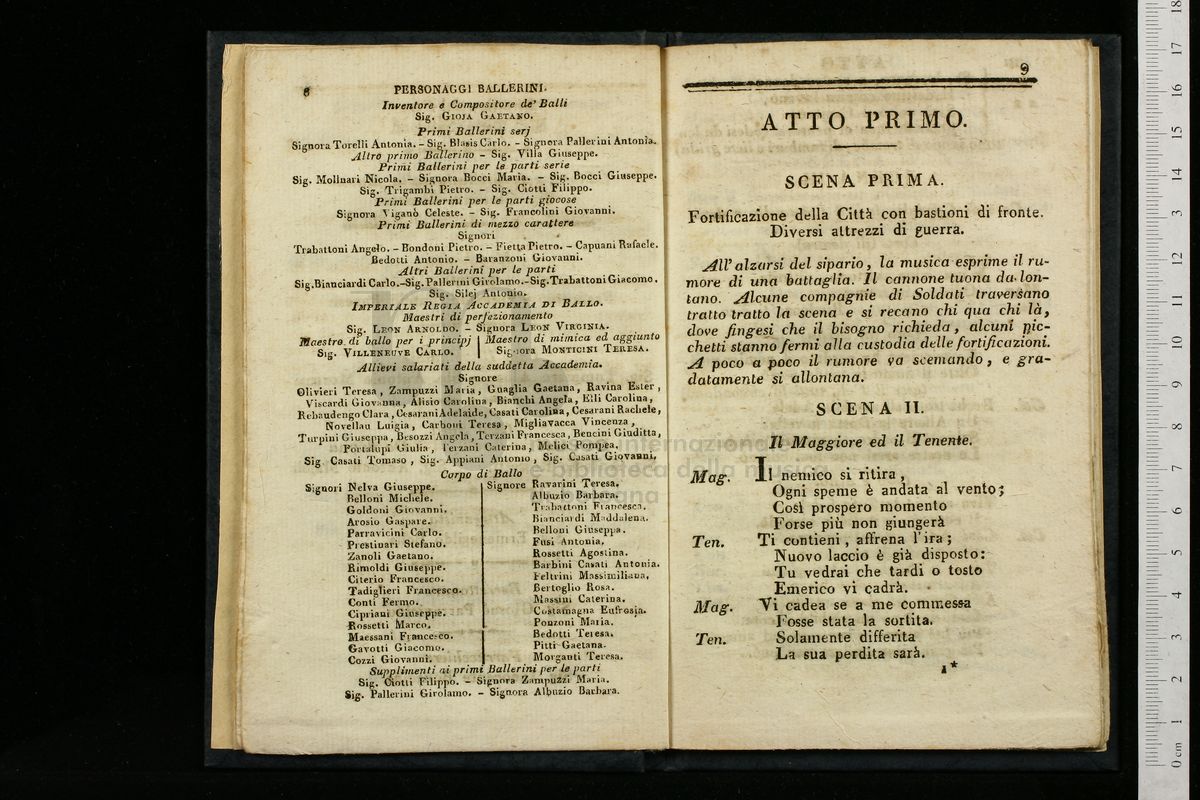 8
PERSONAGGI BALLERINI.
Inventore e Compositore de' Balli
Sig. GIOJA GAETANO.
Primi Ballerini serj
Signora Torelli Antonia. – Sig. Blasis Carlo. – Signora Pallerini Antonia.
Altro primo Ballerino – Sig. Villa Giuseppe.
Primi Ballerini per le parti serie
Sig. Molinari Nicola. – Signora Bocci Maria. – Sig. Bocci Giuseppe.
Sig. Trigambi Pietro. – Sig. Ciotti Filippo.
Primi Ballerini per le parti giocose
Signora Viganò Celeste. – Sig. Francolini Giovanni.
Primi Ballerini di mezzo carattere
Signori
Trabattoni Angelo. – Bondoni Pietro. – Fietta Pietro. – Capuani Rafaele.
Bedotti Antonio. – Baranzoni Giovanni.
Altri Ballerini per le parti
Sig. Bianciardi Carlo.–Sig. Pallerini Girolamo.–Sig. Trabattoni Giacomo.
Sig. Silej Antonio.
IMPERIALE REGIA ACCADEMIA DI BALLO.
Maestri di perfezionamento
Sig. LEON ARNOLDO. – Signora LEON VIRGINIA.
Maestro di ballo per i principj | Maestro di mimica ed aggiunto
Sig. VILLENEUVE CARLO. | Signora MONTICINI TERESA.
Allievi salariati della suddetta Accademia.
Signore
Olivieri Teresa, Zampuzzi Maria, Guaglia Gaetana, Ravina Ester,
Viscardi Giovanna, Alisio Carolina, Bianchi Angela, Elli Carolina,
Rebaudengo Clara, Cesarani Adelaide, Casati Carolina, Cesarani Rachele,
Novellau Luigia, Carboni Teresa, Migliavacca Vincenza,
Turpini Giuseppa, Besozzi Angela, Terzani Francesca, Bencini Giuditta,
Portalupi Giulia, Terzani Caterina, Melici Pompea.
Sig. Casati Tomaso, Sig. Appiani Antonio, Sig. Casati Giovanni.
Corpo di Ballo
Signori Nelva Giuseppe.
Belloni Michele.
Goldoni Giovanni.
Arosio Gaspare.
Parravicini Carlo.
Prestinari Stefano.
Zanoli Gaetano.
Rimoldi Giuseppe.
Citerio Francesco.
Tadiglieri Francesco.
Conti Fermo.
Cipriani Giuseppe.
Rossetti Marco.
Maessani Francesco.
Gavotti Giacomo.
Cozzi Giovanni.
Signore Ravarini Teresa.
Albuzio Barbara.
Trabattoni Francesca.
Bianciardi Maddalena.
Belloni Giuseppa.
Fusi Antonia.
Rossetti Agostina.
Barbini Casati Antonia.
Feltrini Massimiliana,
Bertoglio Rosa.
Massini Caterina.
Costamagna Eufrosia.
Ponzoni Maria.
Bedotti Teresa.
Pitti Gaetana.
Morganti Teresa.
Supplimenti ai primi Ballerini per le parti
Sig. Ciotti Filippo. – Signora Zampuzzi Maria.
Sig. Pallerini Girolamo. – Signora Albuzio Barbara.
9
ATTO PRIMO.
SCENA PRIMA.
Fortificazione della Città con bastioni di fronte.
Diversi attrezzi di guerra.
All' alzarsi del sipario, la musica esprime il ru-
more di una battaglia. Il cannone tuona da lon-
tano. Alcune compagnie di Soldati traversano
tratto tratto la scena e si recano chi qua chi là,
dove fingesi che il bisogno richieda, alcuni pic-
chetti stanno fermi alla custodia delle fortificazioni.
A poco a poco il rumore va scemando, e gra-
datamente si allontana.
SCENA II.
Il Maggiore ed il Tenente.
Mag. Il nemico si ritira,
Ogni speme è andata al vento;
Così prospero momento
Forse più non giungerà
Ten. Ti contieni, affrena l'ira;
Nuovo laccio è già disposto:
Tu vedrai che tardi o tosto
Emerico vi cadrà.
Mag. Vi cadea se a me commessa
Fosse stata la sortita.
Ten. Solamente differita
La sua perdita sarà.
1*